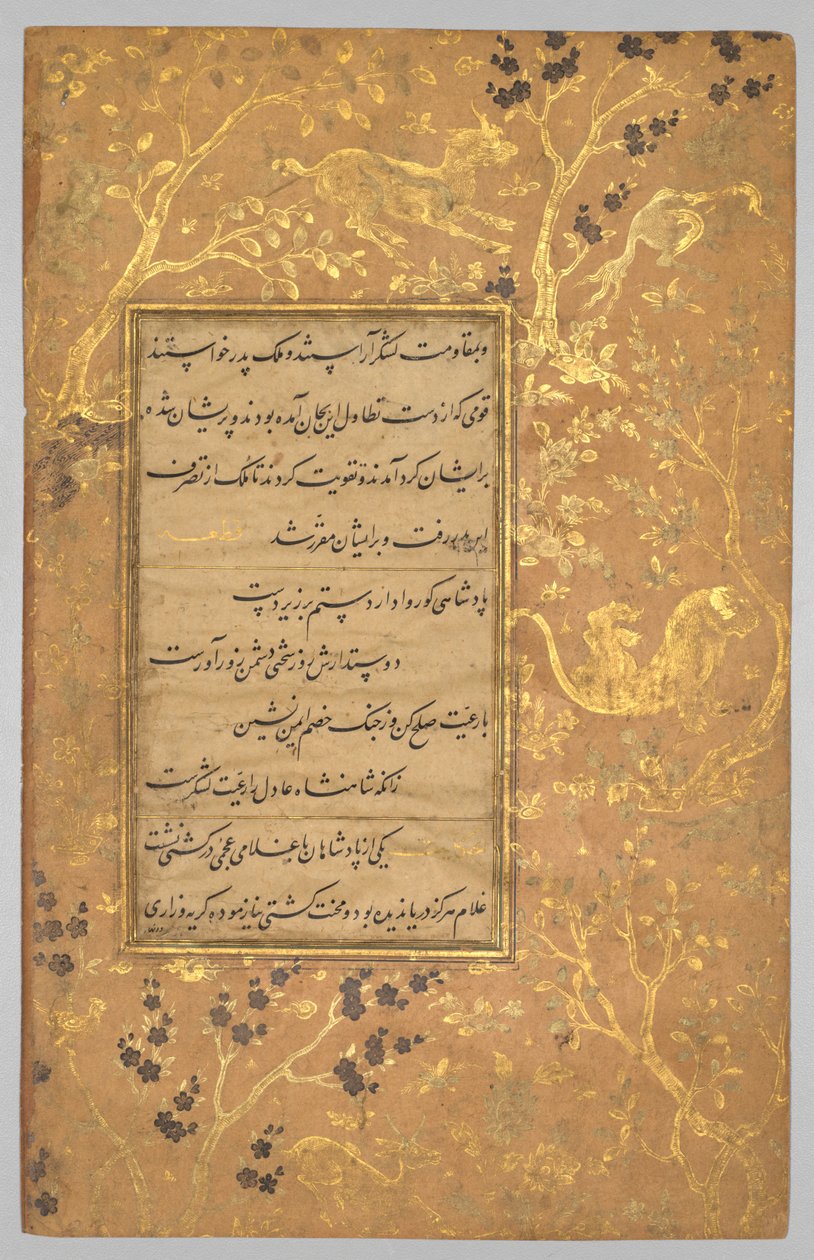 و بمقاومت لشکر آراستند و ملک پدر خواستند
قومی که از دست تطاول این بجان آمده بودند و پریشان شده
بر ایشان گرد آمدند و تقویت کردند تا ملک از تصرف
این بدر رفت و بر ایشان مقرّر شد قطعه
پادشاهی کو روا دارد ستم بر زیردست
دوستدارش روز سختی دشمن زورآورست
با رعیّت صلح کن وز جنگ خصم ایمن نشین
زانکه شاهنشاه عادل را رعیّت لشکرست
حکایت یکی از پادشاهان با غلامی عجمی در کشتی نشست
غلام هرگز دریا ندیده بود و محنت کشتی نیازموده گریه و زاری